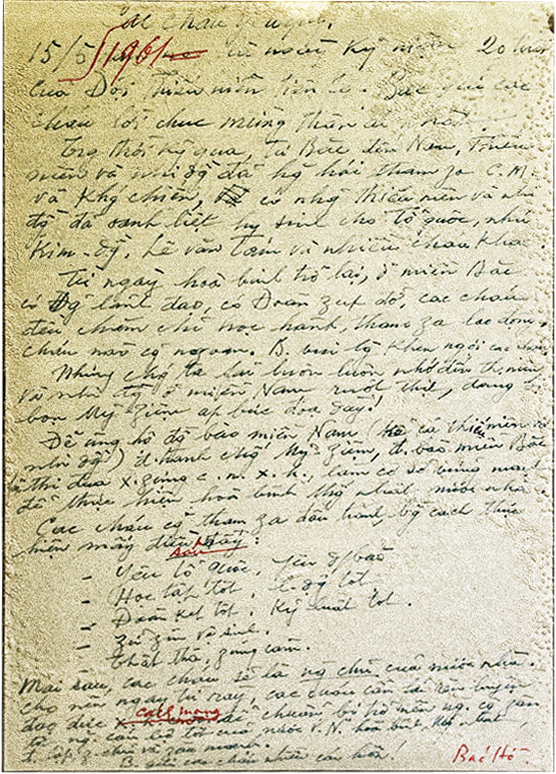 Các cháu
15/5/1961 là ngày kỷ niệm 20 tuổi
của Đội thiếu niên tiền . Bác gửi các
cháu lời chúc mừng thân ái nhất.
Trg thời kỳ qua, từ Bắc đến Nam, thiếu
niên và nhi đg đã hg hái tham za C.M.
và Khg chiến, có nhg thiếu niên và nhi
đg đã oanh liệt hy sinh cho tổ quốc, như
Kim-đg, Lê văn Tám và nhiều cháu khác.
Từ ngày hoà bình trở lại, ở miền Bắc
có Đg lãnh đạo, có Đoàn zúp đỡ, các cháu
đều chăm chỉ học hành, tham za lao động,
cháu nào cg ngoan. B. vui lg khen ngợi các cháu.
Nhưng chg ta luôn luôn nhớ đến th. niên
và nhi đg ở miền Nam ruột thịt, đang bị
bọn Mỹ Ziệm áp bức đoạ đầy!
Để ủng hộ đg bào miền Nam (kể cả thiếu niên và
nhi đg) đ. tranh chg Mỹ Ziệm, đ. bào miền Bắc
thi đua x. zựng c.n.x.h., làm cơ sở vững mạnh
để thực hiện hoà bình thg nhất nước nhà.
Các cháu cg tham za đấu tranh, bg cách thực
hiện mấy điều sau đây:
- Yêu tổ quốc, yêu đ/bào
- Học tập tốt, l. độg tốt.
- Đoàn kết tốt. Kỷ luật tốt.
- Zữ zìn vệ sinh.
- Thật thà, zũng cảm.
Mai sau, các cháu sẽ là ng chủ của nước nhà.
cho nên ngay từ rày, các cháu cần rèn luyện
đạo đức cách mạng để chuẩn bị trở nên ng. cg zân
tốt, ng. cán bộ tốt của nước V.N. hoà bình, thg nhất,
đ. lập, z. chủ và zàu mạnh.
B. gửi các cháu nhiều cái hôn!
Bác Hồ.